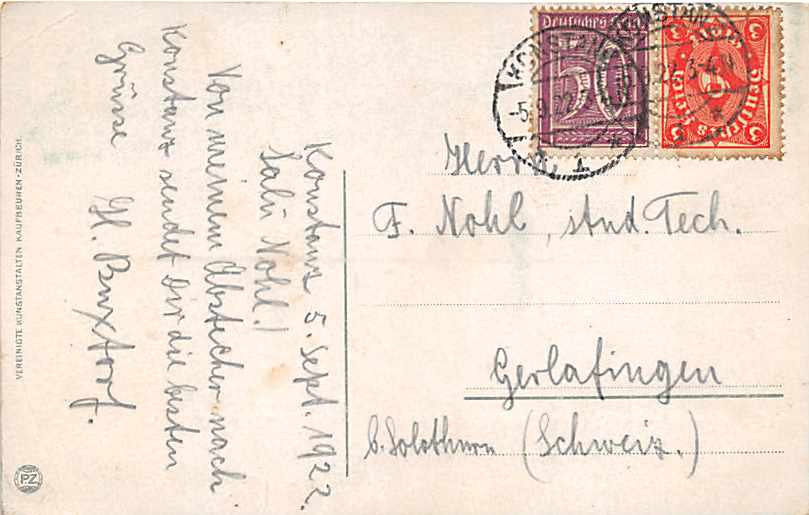 Konstanz 5. Sept. 1922.
Salü Nohl!
Von meinem Abstecher nach
Konstanz sendet Dir die besten
Grüsse H. Buxtorf.
Herrn
F. Nohl, stud. Tech.
Gerlafingen
b. Solothurn (Schweiz.)
Deutsches Reich
50
KONSTANZ
-5.9.22
3-4 N
Deutsches Reich
3
VEREINIGTE KUNSTANSTALTEN KAUFBEUREN-ZÜRICH.
PZ